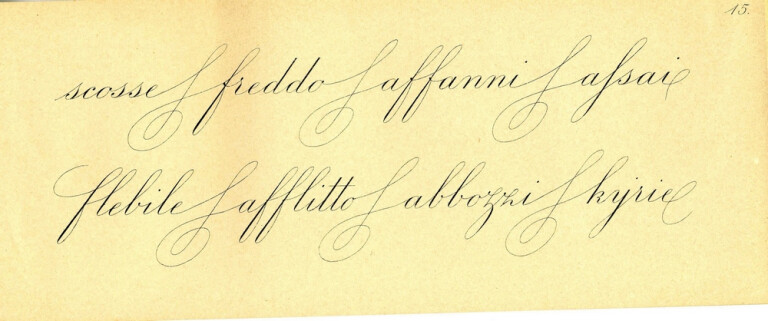 15.
scosse freddo affanni aſsai
flebile afflitto abbozzi kyrie